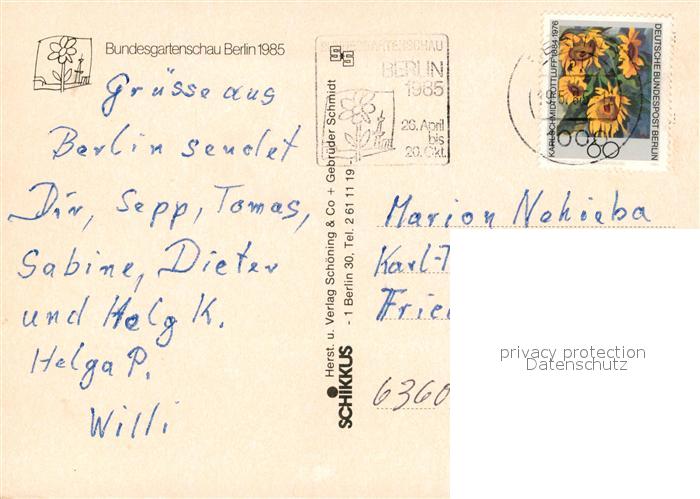 Bundesgartenschau Berlin 1985
Grüsse aus
Berlin sendet
Dir, Sepp, Tomas,
Sabine, Dieter
und Helg K.
Helga P.
Willi
BERLIN
1985
26. April
bis
20. Okt.
KARL SCHMIDT-ROTTLUFF 1884-1976
DEUTSCHE BUNDESPOST BERLIN
60
SCHIKKUS
Herst. u. Verlag Schöning & Co + Gebrüder Schmidt
- 1 Berlin 30, Tel. 2 61 11 19 -
Marion Nehieba
Karl-
Frie
6360
privacy protection
Datenschutz